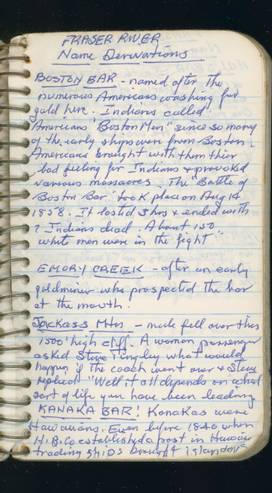 FRASER RIVER
Name Derivations
BOSTON BAR - named after the
numerous Americans washing for
gold here. Indians called
Americans "Boston Men" since so many
of the early ships were from Boston.
Americans brought with them their
bad feeling for Indians & provoked
various massacres. The "Battle of
Boston Bar" took place on Aug 14
1858. It lasted 3 hrs & ended with
7 Indians dead. About 150
white men were in the fight.
EMORY CREEK - after an early
goldminer who prospected the bar
at the mouth.
JACKASS Mtn - mule fell over this
1500' high cliff. A woman passenger
asked Steve Tingley what would
happen if the coach went over & Steve
replied "Well it all depends on what
sort of life you have been leading
KANAKA BAR! Kanakas were
Hawaiians. Even before 1840 when
H.B.Co established a post in Hawaii
trading ships brought islanders